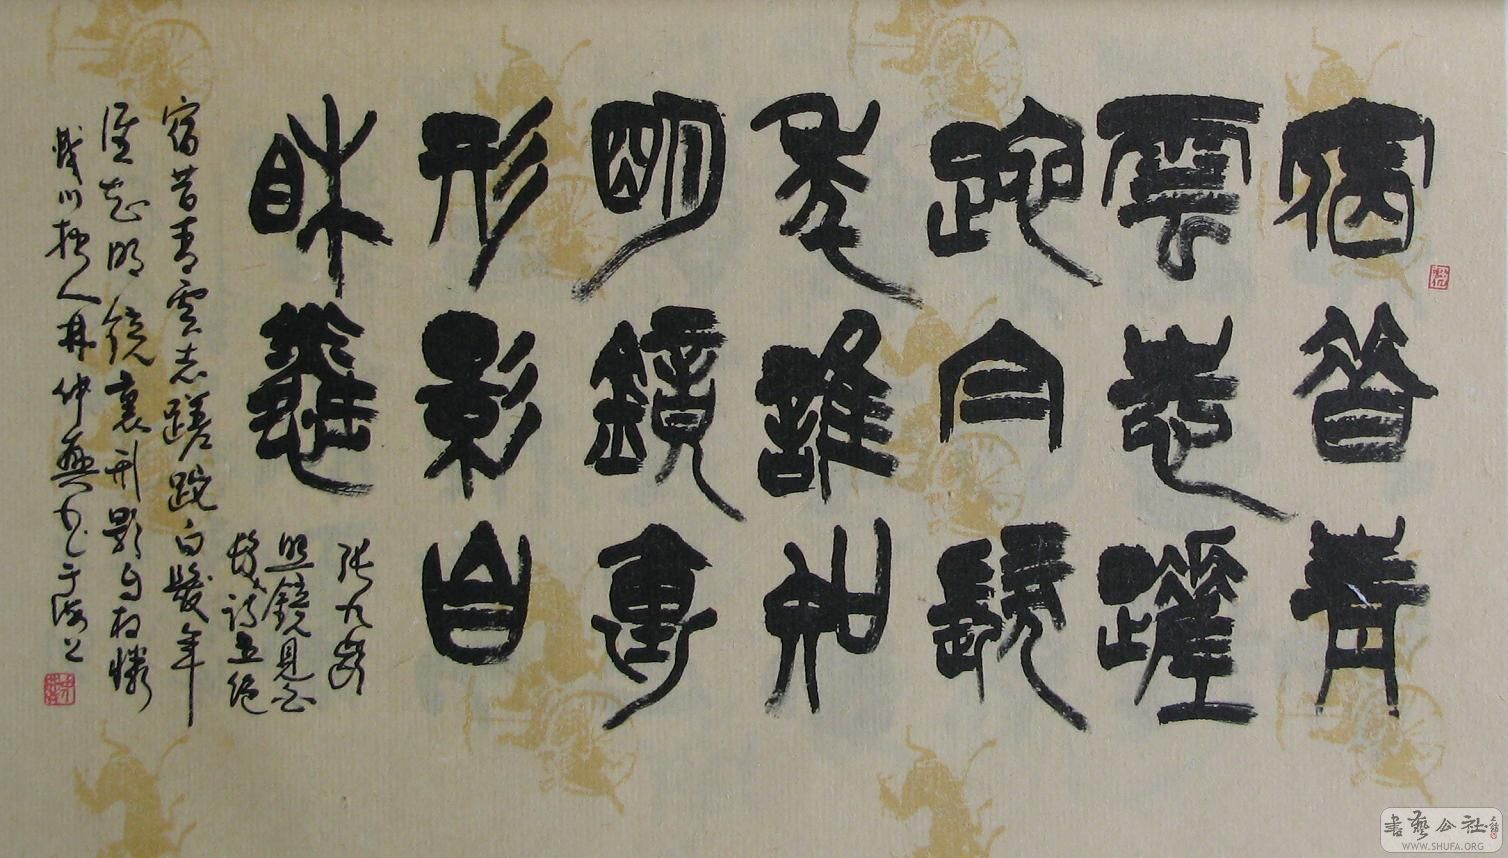 宿昔青
雲志蹉
跎白髮
年誰知
明鏡裏
形影自
相憐
張九齡
照鏡見白
髮詩五絕
宿昔青雲志蹉跎白髮年
誰知明鏡裏形影自相憐
川拙人井仲書于海上
書藝公社
WWW.SHUFA.ORG